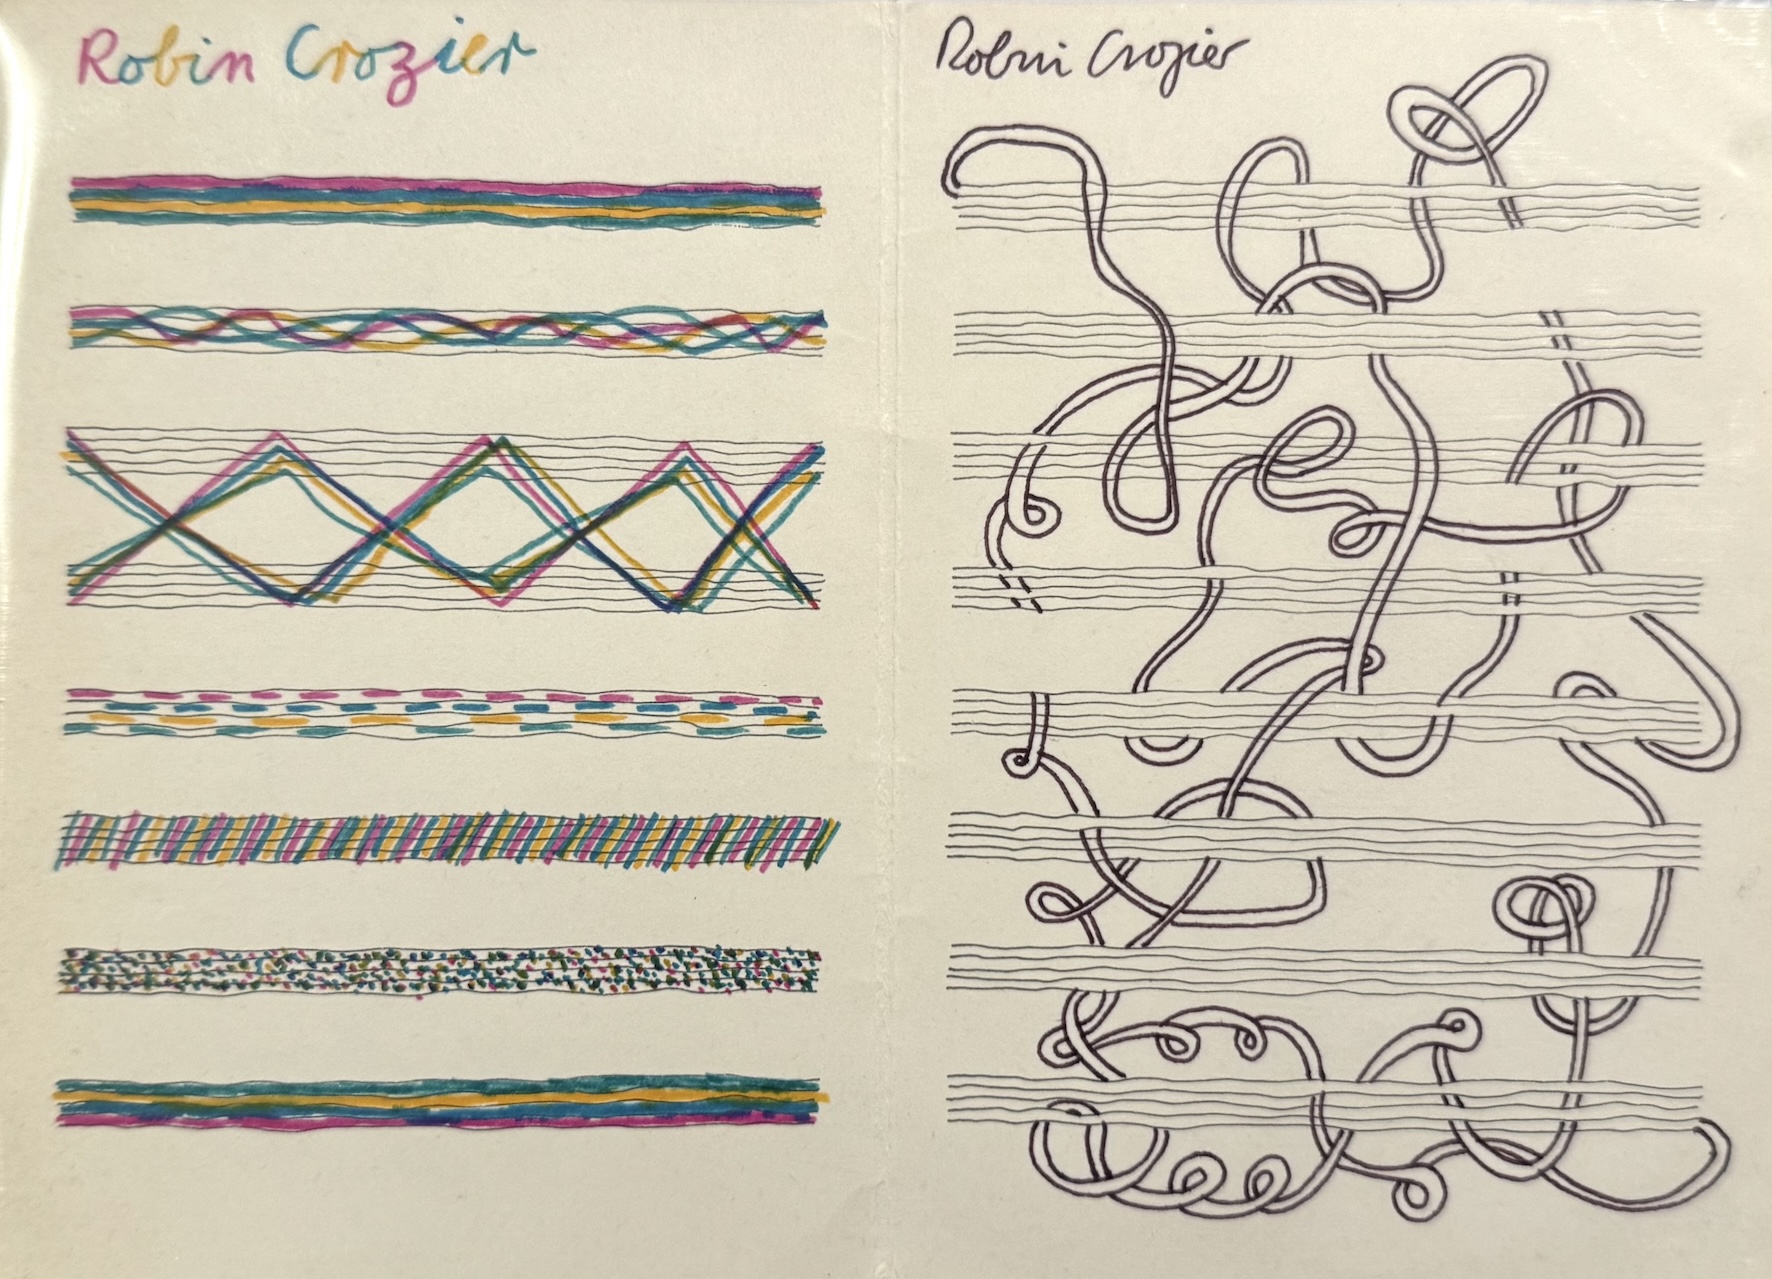 Robin Crozier
Robin Crozier